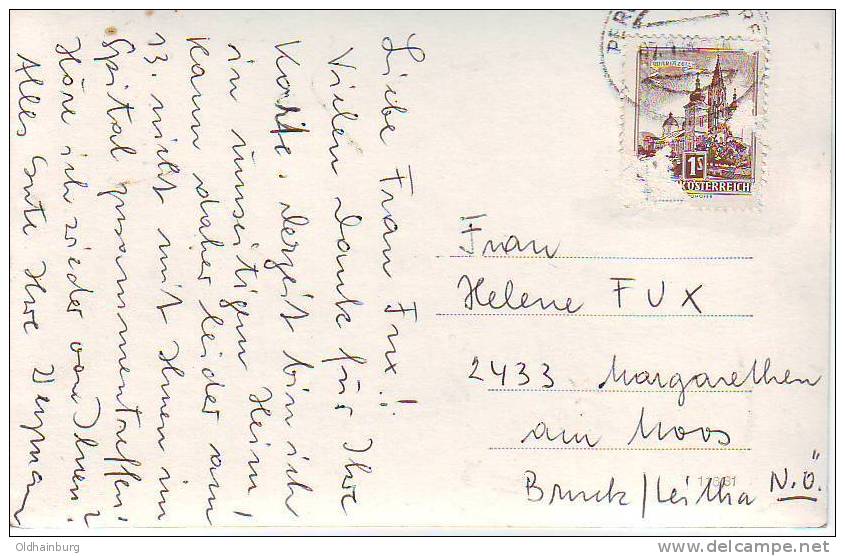 Liebe Frau Fux!
Vielen Dank für Ihre
Karte. Derzeit bin ich
in umseitigem Heim!
Kann daher leider am
13. nicht mit Ihnen im
Spital zusammentreffen!
Höre ich wieder von Ihnen?
Alles Gute Ihre
MARIAZELL
1S
REPUBLIK ÖSTERREICH
Frau
Helene FUX
2433 Margarethen
am Moos
Bruck/Leitha N.Ö.
Oldhainburg
delcampe.net